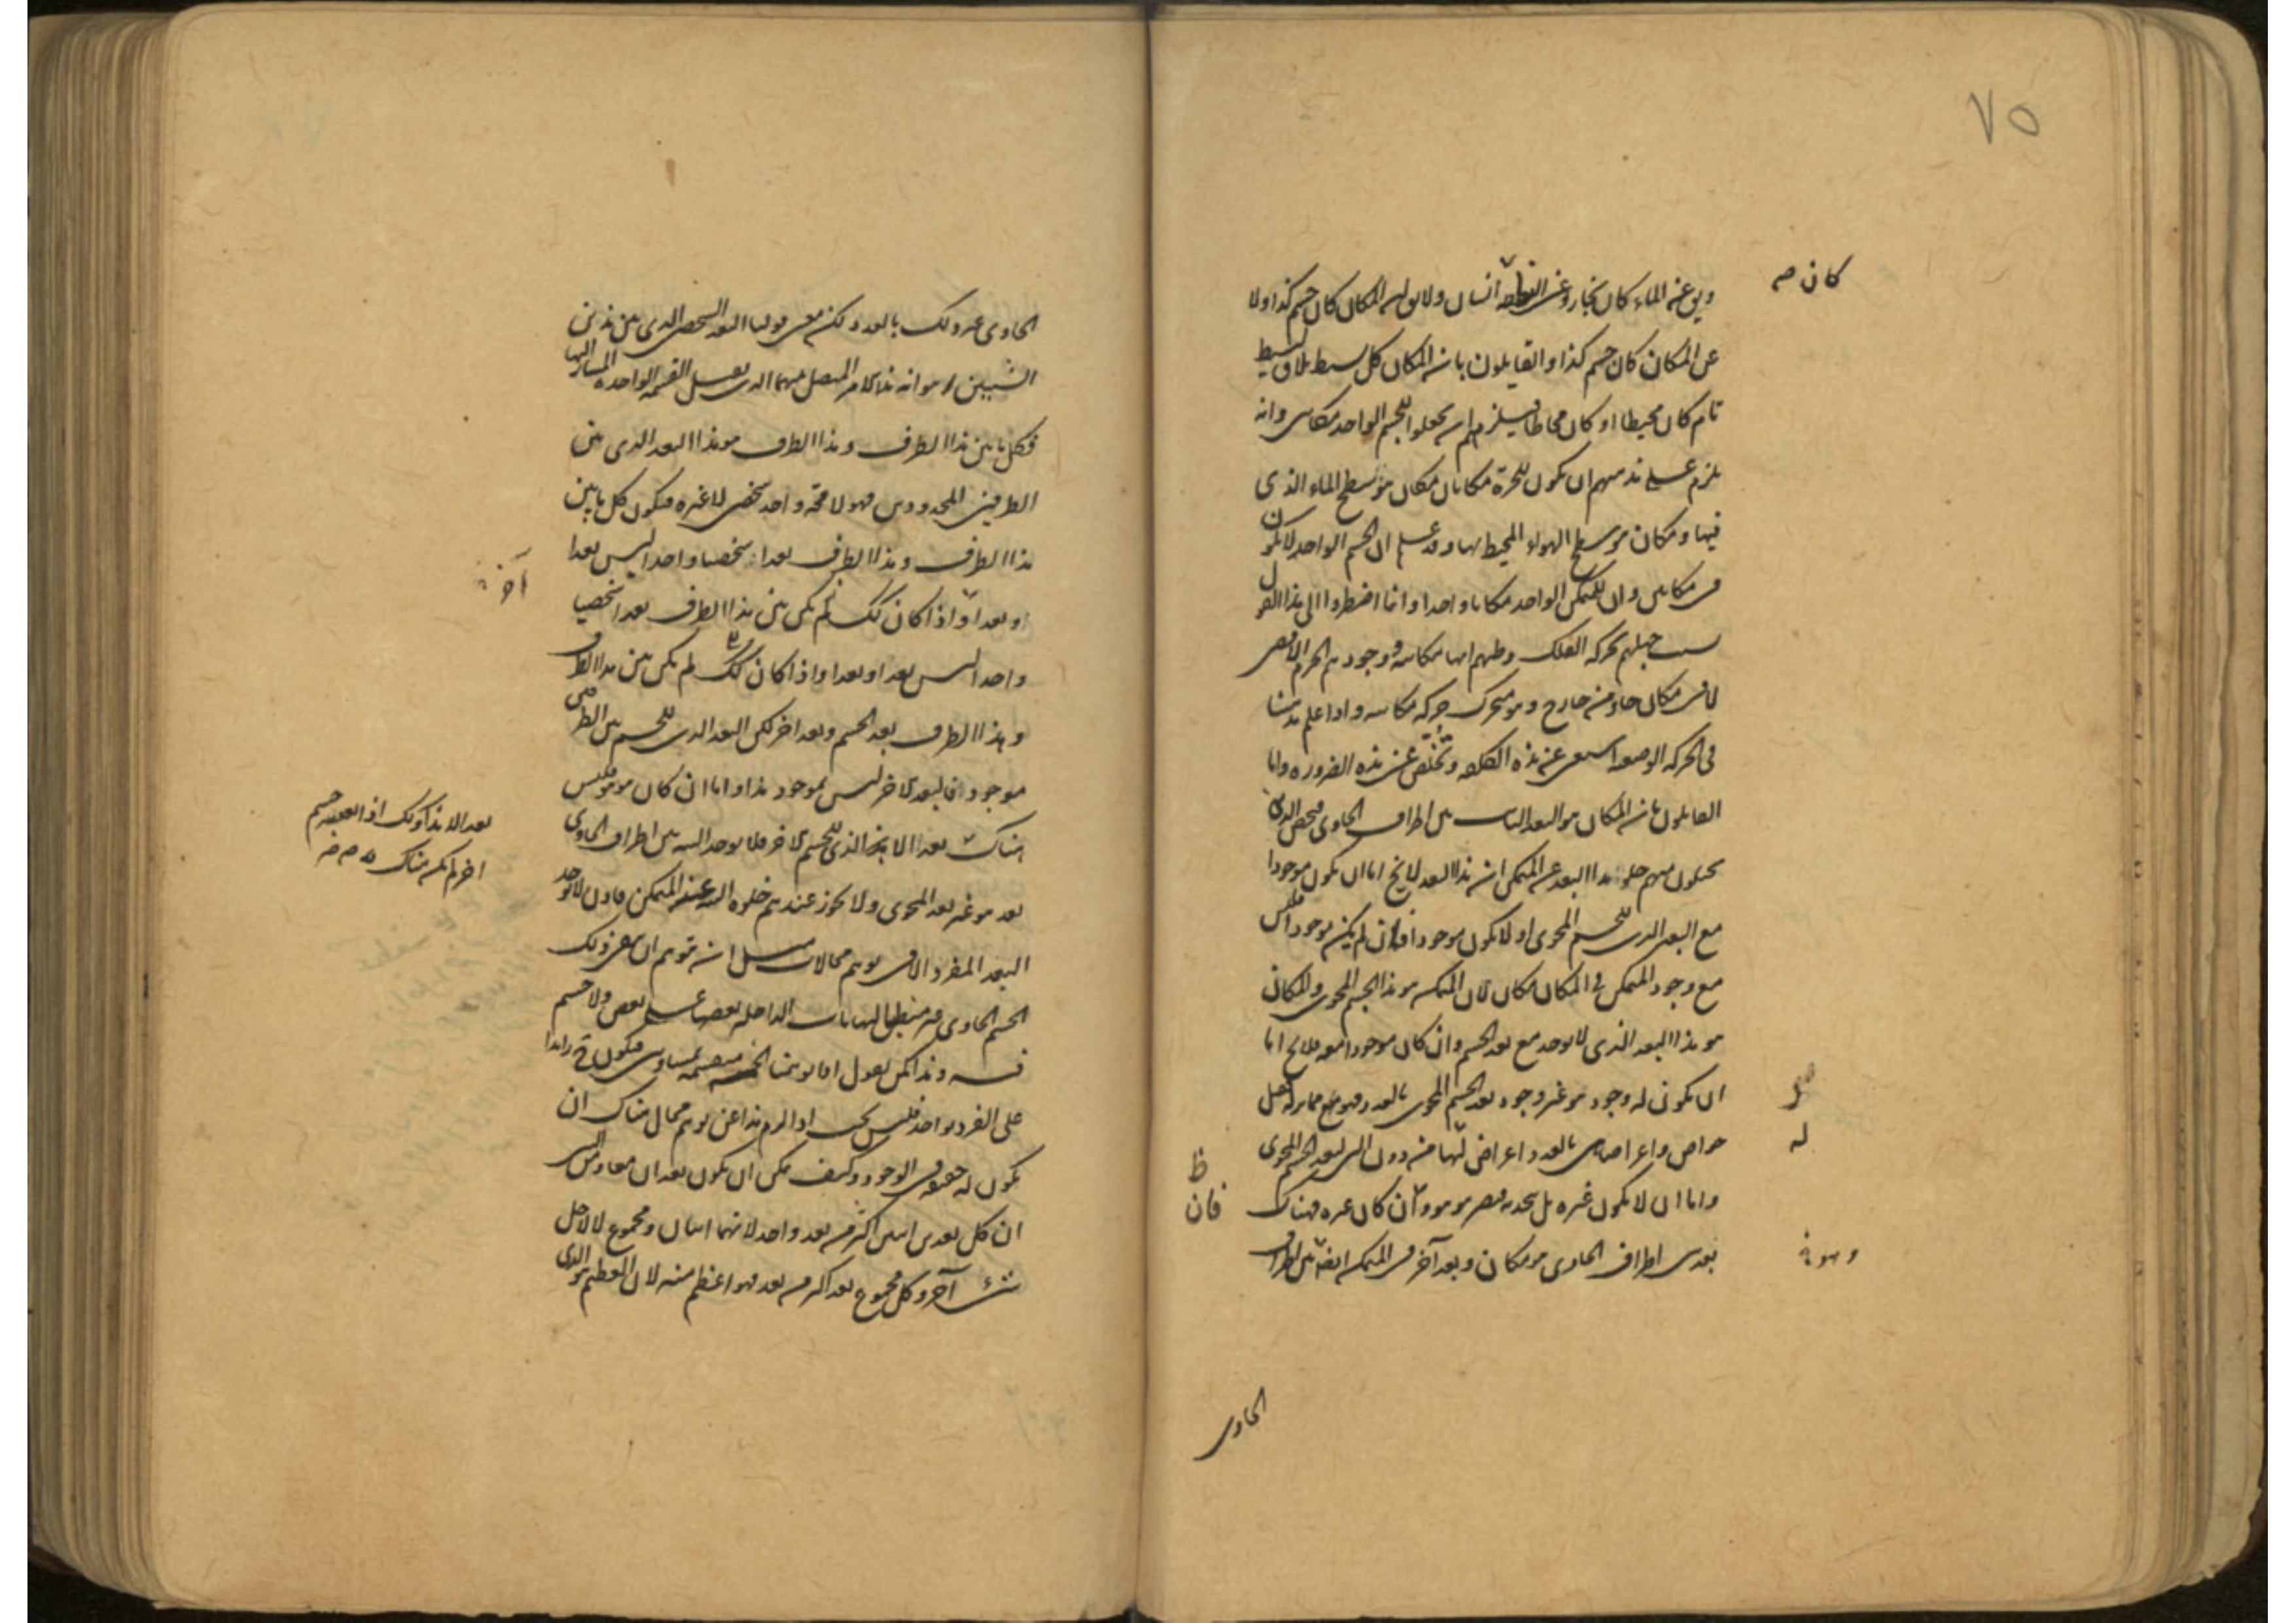 ٧٥
كان صه
ويق عن الماء كان بخار وعن النطفة انسان ولا يق ان المكان كان جسم كذا ولا
عن المكان كان جسم كذا والقايلون بان المكان كل بسيط يلاق بسيط
تام كان محيطا او كان محاطا فيلزمهم ان يجعلوا للجسم الواحد مكانين وانه
يلزم على مذهبهم ان يكون للجرة مكانان مكان هو سطح الماء الذى
فيها ومكان هو سطح الهواء المحيط بها وقد علم ان الجسم الواحد لا يكون
فى مكانين وان للمتمكن الواحد مكانا واحدا وانما اضطروا الى هذا القول
بسبب جهلهم بحركة الفلك وظنهم انها مكانية ووجودهم الجرم الاقصى
لا فى مكان حاو من خارج وهو متحرك حركة مكانية واذا علم مذهبنا
فى الحركة الوضعية استغنى عن هذه الكلفة وتخلص عن هذه الضرورة واما
القايلون بان المكان هو البعد الثابت بين اطراف الحاوى فنخص الذين
يحيلون منهم خلو هذا البعد عن المتمكن ان هذا البعد لا يخ اما ان يكون موجودا
مع البعد الذى للجسم المحوى او لا يكون موجودا فان لم يكن موجودا فليس
مع وجود المتمكن فى المكان مكان لان المتمكن هو هذا الجسم المحوى والمكان
هو هذا البعد الذى لا يوجد مع بعد الجسم وان كان موجودا معه فلا يخ اما
ان يكون له وجود هو غير وجود بعد الجسم المحوى بالعدد فهو مع مغايرته له يقبل
خواص واعراضا هى بالعدد اعراض لها من دون التى لبعد الجسم المحوى
له
واما ان لا يكون غيره بل يتحد به فيصير هو هو وان كان غيره فهناك
ظ
فان
بعد بين اطراف الحاوى هو مكان وبعد آخر فى المتمكن ايضا بين اطراف
وهو
الحاوى
الحاوى غير ذلك بالعدد لكن معنى قولنا البعد الشخصى الذى بين هذين
الشيئين هو انه هذا الامر المتصل بينهما الذى يقبل القسمة الواحدة المشار اليها
فكل ما بين هذا الطرف وهذا الطرف هو هذا البعد الذى بين
الطرفين المحدودين فهو لا محة واحد شخصى لا غيره فيكون كل ما بين
هذا الطرف وهذا الطرف بعدا شخصيا واحدا ليس بعدا
آخر
او بعدا واذا كان كك لم يكن بين هذا الطرف بعدا شخصيا
واحدا ليس بعدا وبعدا واذا كان كك لم يكن بين هذا الطرف
وهذا الطرف بعد الجسم وبعد اخر لكن البعد الذى للجسم بين الطرفين
موجود فالبعد الاخر ليس بموجود هذا واما ان كان هو هو فليس
هناك بعد الا هذا الذى للجسم الاخر فلا يوجد البتة بين اطراف الحاوى
بعد الا هذا وكك اذا تعقبه جسم
اخر لم يكن هناك
بعد هو غير بعد المحوى ولا يجوز عندهم خلوه البتة عن المتمكن فاذن لا يوجد
البعد المفرد الا فى توهم محالات مثل ان يتوهم ان يبقى ذلك
الجسم الحاوى غير منطبق النهايات الداخلة بعضها على بعض ولا جسم
فيه وهذا كمن يقول اذا توهمنا الخمسة منقسمة بمتساويين فيكون ح زايدا
على الفرد بواحد فليس يجب اذا لزم هذا عن توهم محال هناك ان
يكون له حقيقة فى الوجود وكيف يمكن ان يكون بعدان معا ومن البين
ان كل بعدين اثنين اكثر من بعد واحد لانهما اثنان ومجموع لا لاجل
شئ آخر وكل مجموع بعد اكثر من بعد فهو اعظم منه لان العظيم هو الذى